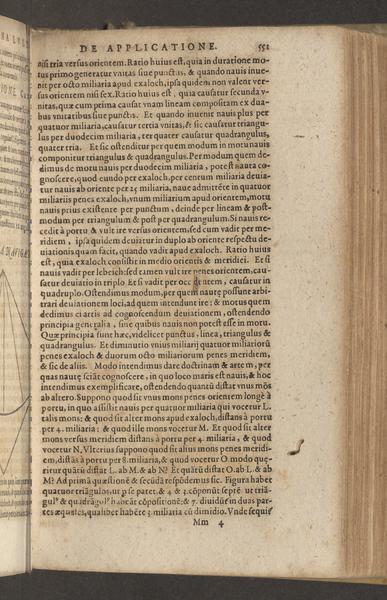 DE APPLICATIONE. 551
nisi tria versus orientem. Ratio huius est, quia in duratione mo-
tus primo generatur vnitas siue punctus, & quando nauis inue-
nit per octo miliaria apud exaloch, ipsa quidem non valent ver-
sus orientem nisi sex. Ratio huius est, quia causatur secunda v-
nitas, quæ cum prima causat vnam lineam compositam ex dua-
bus vnitatibus siue punctis. Et quando inuenit nauis plus per
quatuor miliaria, causatur tertia vnitas, & sic causatur triangu-
lus per duodecim miliaria, ter quater causatur quadrangulus,
quater tria. Et sic ostenditur per quem modum in motu nauis
componitur triangulus & quadrangulus. Per modum quem de-
dimus de motu nauis per duodecim miliaria, potest nauta co-
gnoscere, quod eundo per exaloch, per centum miliaria deuia-
tur nauis ab oriente per 25 miliaria, naue admittẽte in quatuor
miliariis penes exaloch, vnum miliarium apud orientem, motu
nauis prius existente per punctum, deinde per lineam & post-
modum per triangulum & post per quadrangulum. Si nauis re-
cedit à portu & vult ire versus orientem, sed cum vadit per me-
ridiem, ipsa quidem deuiatur in duplo ab oriente respectu de-
uiationis quam facit, quando vadit apud exaloch. Ratio huius
est, quia exaloch consistit in medio orientis & meridiei. Et si
nauis vadit per lebeich: sed tamen vult ire penes orientem, cau-
satur deuiatio in triplo. Et si vadit per occidentem, causatur in
quadruplo. Ostendimus modum, per quem nautę possunt arbi-
trari deuiationem loci, ad quem intendunt ire: & motus quem
dedimus ci artis ad cognoscendum deuiationem, ostendendo
principia generalia, sine quibus nauis non potest esse in motu.
Quæ principia sunt hæc, videlicet punctus, linea, triangulus &
quadrangulus. Et diminutio vnius miliarij quatuor miliariorũ
penes exaloch & duorum octo miliariorum penes meridiem,
& sic de aliis. Modo intendimus dare doctrinam & artem, per
quas nautę sciãt cognoscere, in quo loco maris est nauis, & hoc
intendimus exemplificare, ostendendo quantũ distat vnus mõs
ab altero. Suppono quod sit vnus mons penes orientem longè à
portu, in quo assistit nauis per quatuor miliaria qui vocetur L.
talis mons: & quod sit alter mons apud exaloch, distans à portu
per 4. miliaria: & quod ille mons vocetur M. Et quod sit alter
mons versus meridiem distans à portu per 4. miliaria, & quod
vocetur N. Vlterius suppono quod sit alius mons penes meridi-
em, distãs à portu per 8. miliaria, & quod vocetur O modo quę-
ritur quãtũ distat L. ab M. & ab N? Et quãtũ distat O. ab L. & ab
M? Ad primã quæstionẽ & secũdã respõdemus sic. Figura habet
quatuor triãgulos, ut p se patet, & 4 & 3. cõponũt septẽ ut triã-
gulꝰ & quadrãgulꝰ habeãt cõpositionẽ: & 7. diuidũt in duas par-
tes æquales, qualibet habẽte 3. miliaria cũ dimidio. Vnde sequit̃
Mm 4